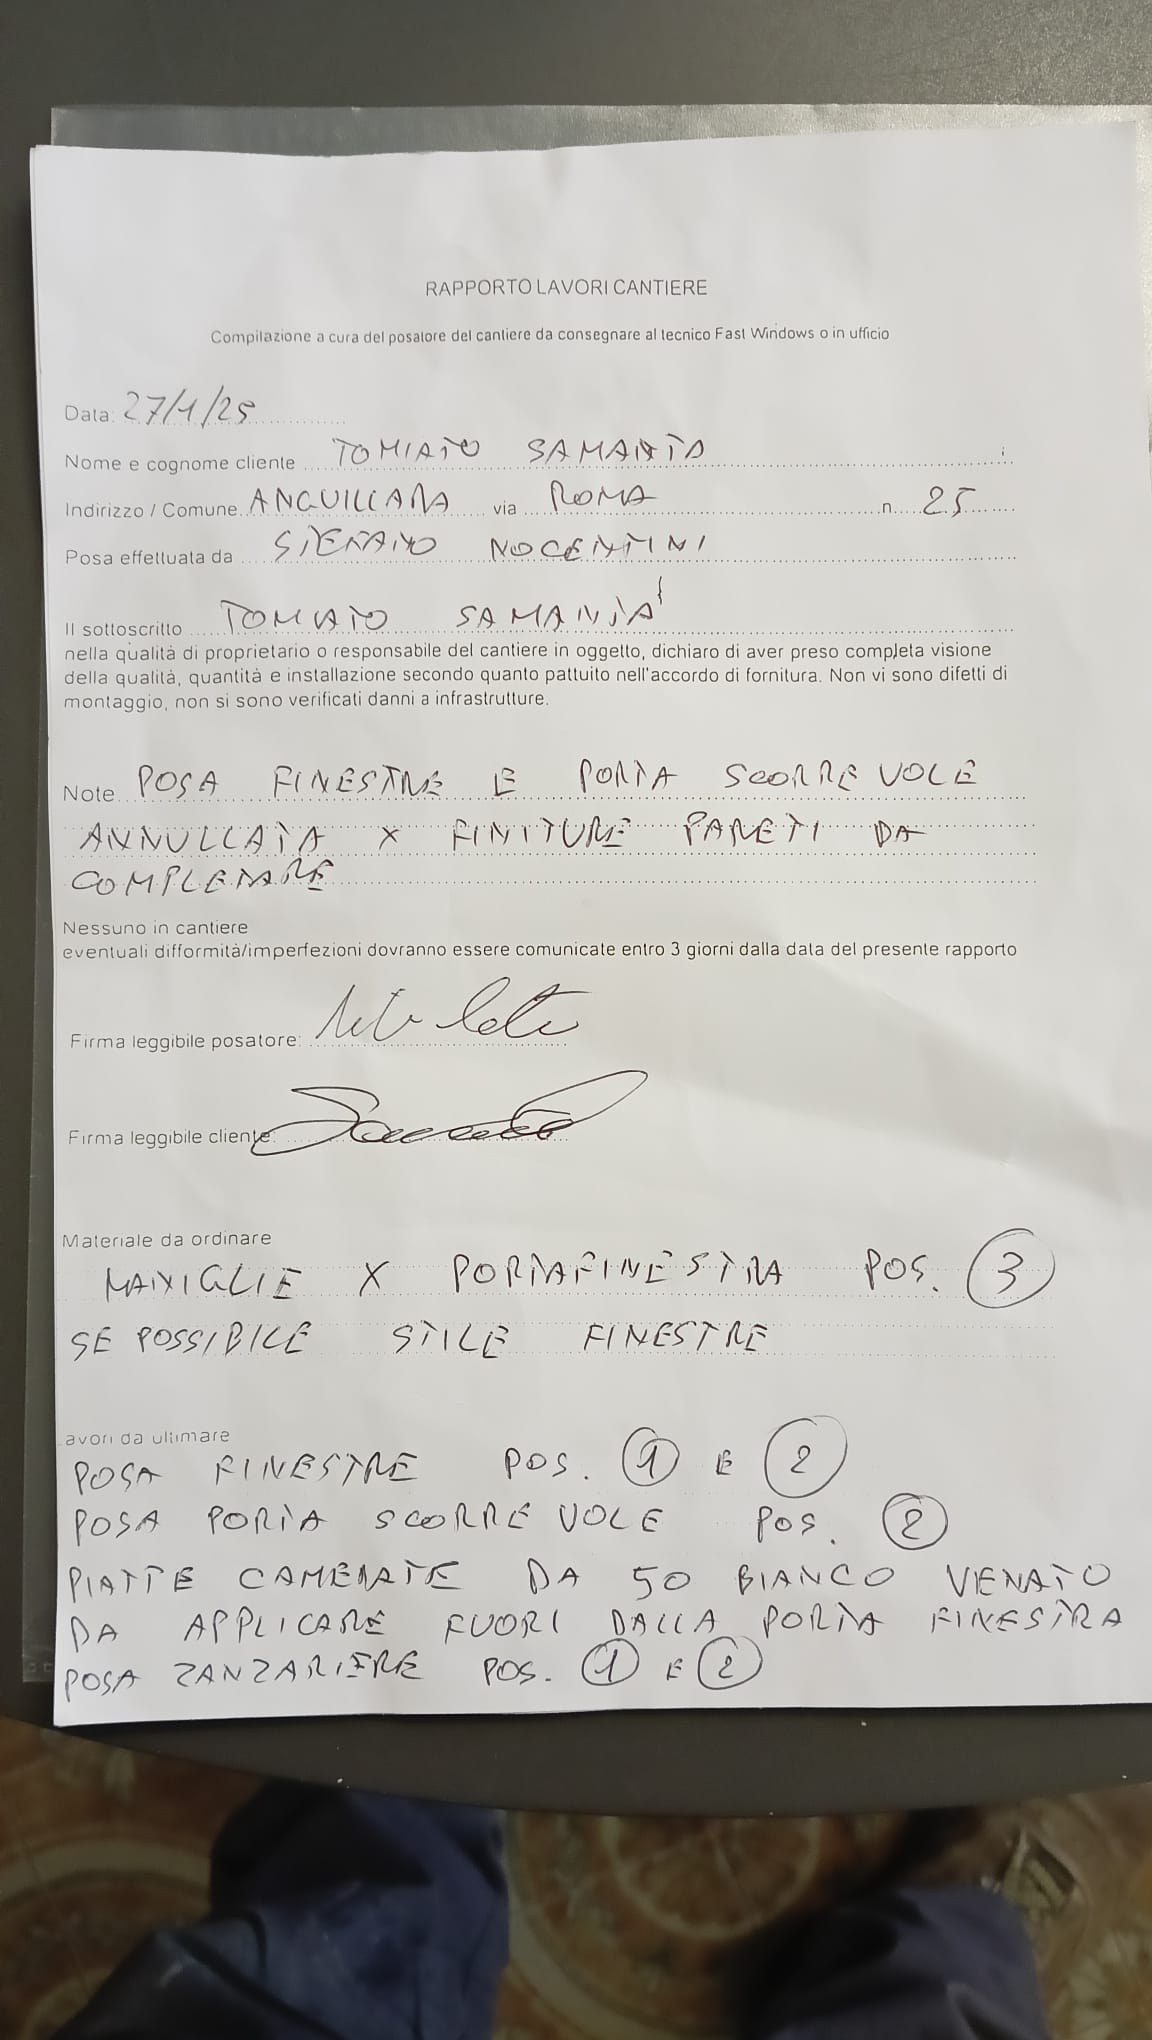 RAPPORTO LAVORI CANTIERE
Compilazione a cura del posatore del cantiere da consegnare al tecnico Fast Windows o in ufficio
Data: 27/1/25
Nome e cognome cliente TOMIATO SAMANTA
Indirizzo / Comune ANGUILLARA via ROMA n. 25
Posa effettuata da STEFANO NOCENTINI
Il sottoscritto TOMIATO SAMANTA
nella qualità di proprietario o responsabile del cantiere in oggetto, dichiaro di aver preso completa visione
della qualità, quantità e installazione secondo quanto pattuito nell'accordo di fornitura. Non vi sono difetti di
montaggio, non si sono verificati danni a infrastrutture.
Note POSA FINESTRE E PORTA SCORREVOLE
ANNULLATA X FINITURE PARETI DA
COMPLETARE
Nessuno in cantiere
eventuali difformità/imperfezioni dovranno essere comunicate entro 3 giorni dalla data del presente rapporto
Firma leggibile posatore:
Firma leggibile cliente:
Materiale da ordinare
MANIGLIE X PORTAFINESTRA POS. 3
SE POSSIBILE STILE FINESTRE
avori da ultimare
POSA FINESTRE POS. 1 E 2
POSA PORTA SCORREVOLE POS. 2
PIATTE CAMERATE DA 50 BIANCO VENATO
DA APPLICARE FUORI DALLA PORTA FINESTRA
POSA ZANZARIERE POS. 1 E 2